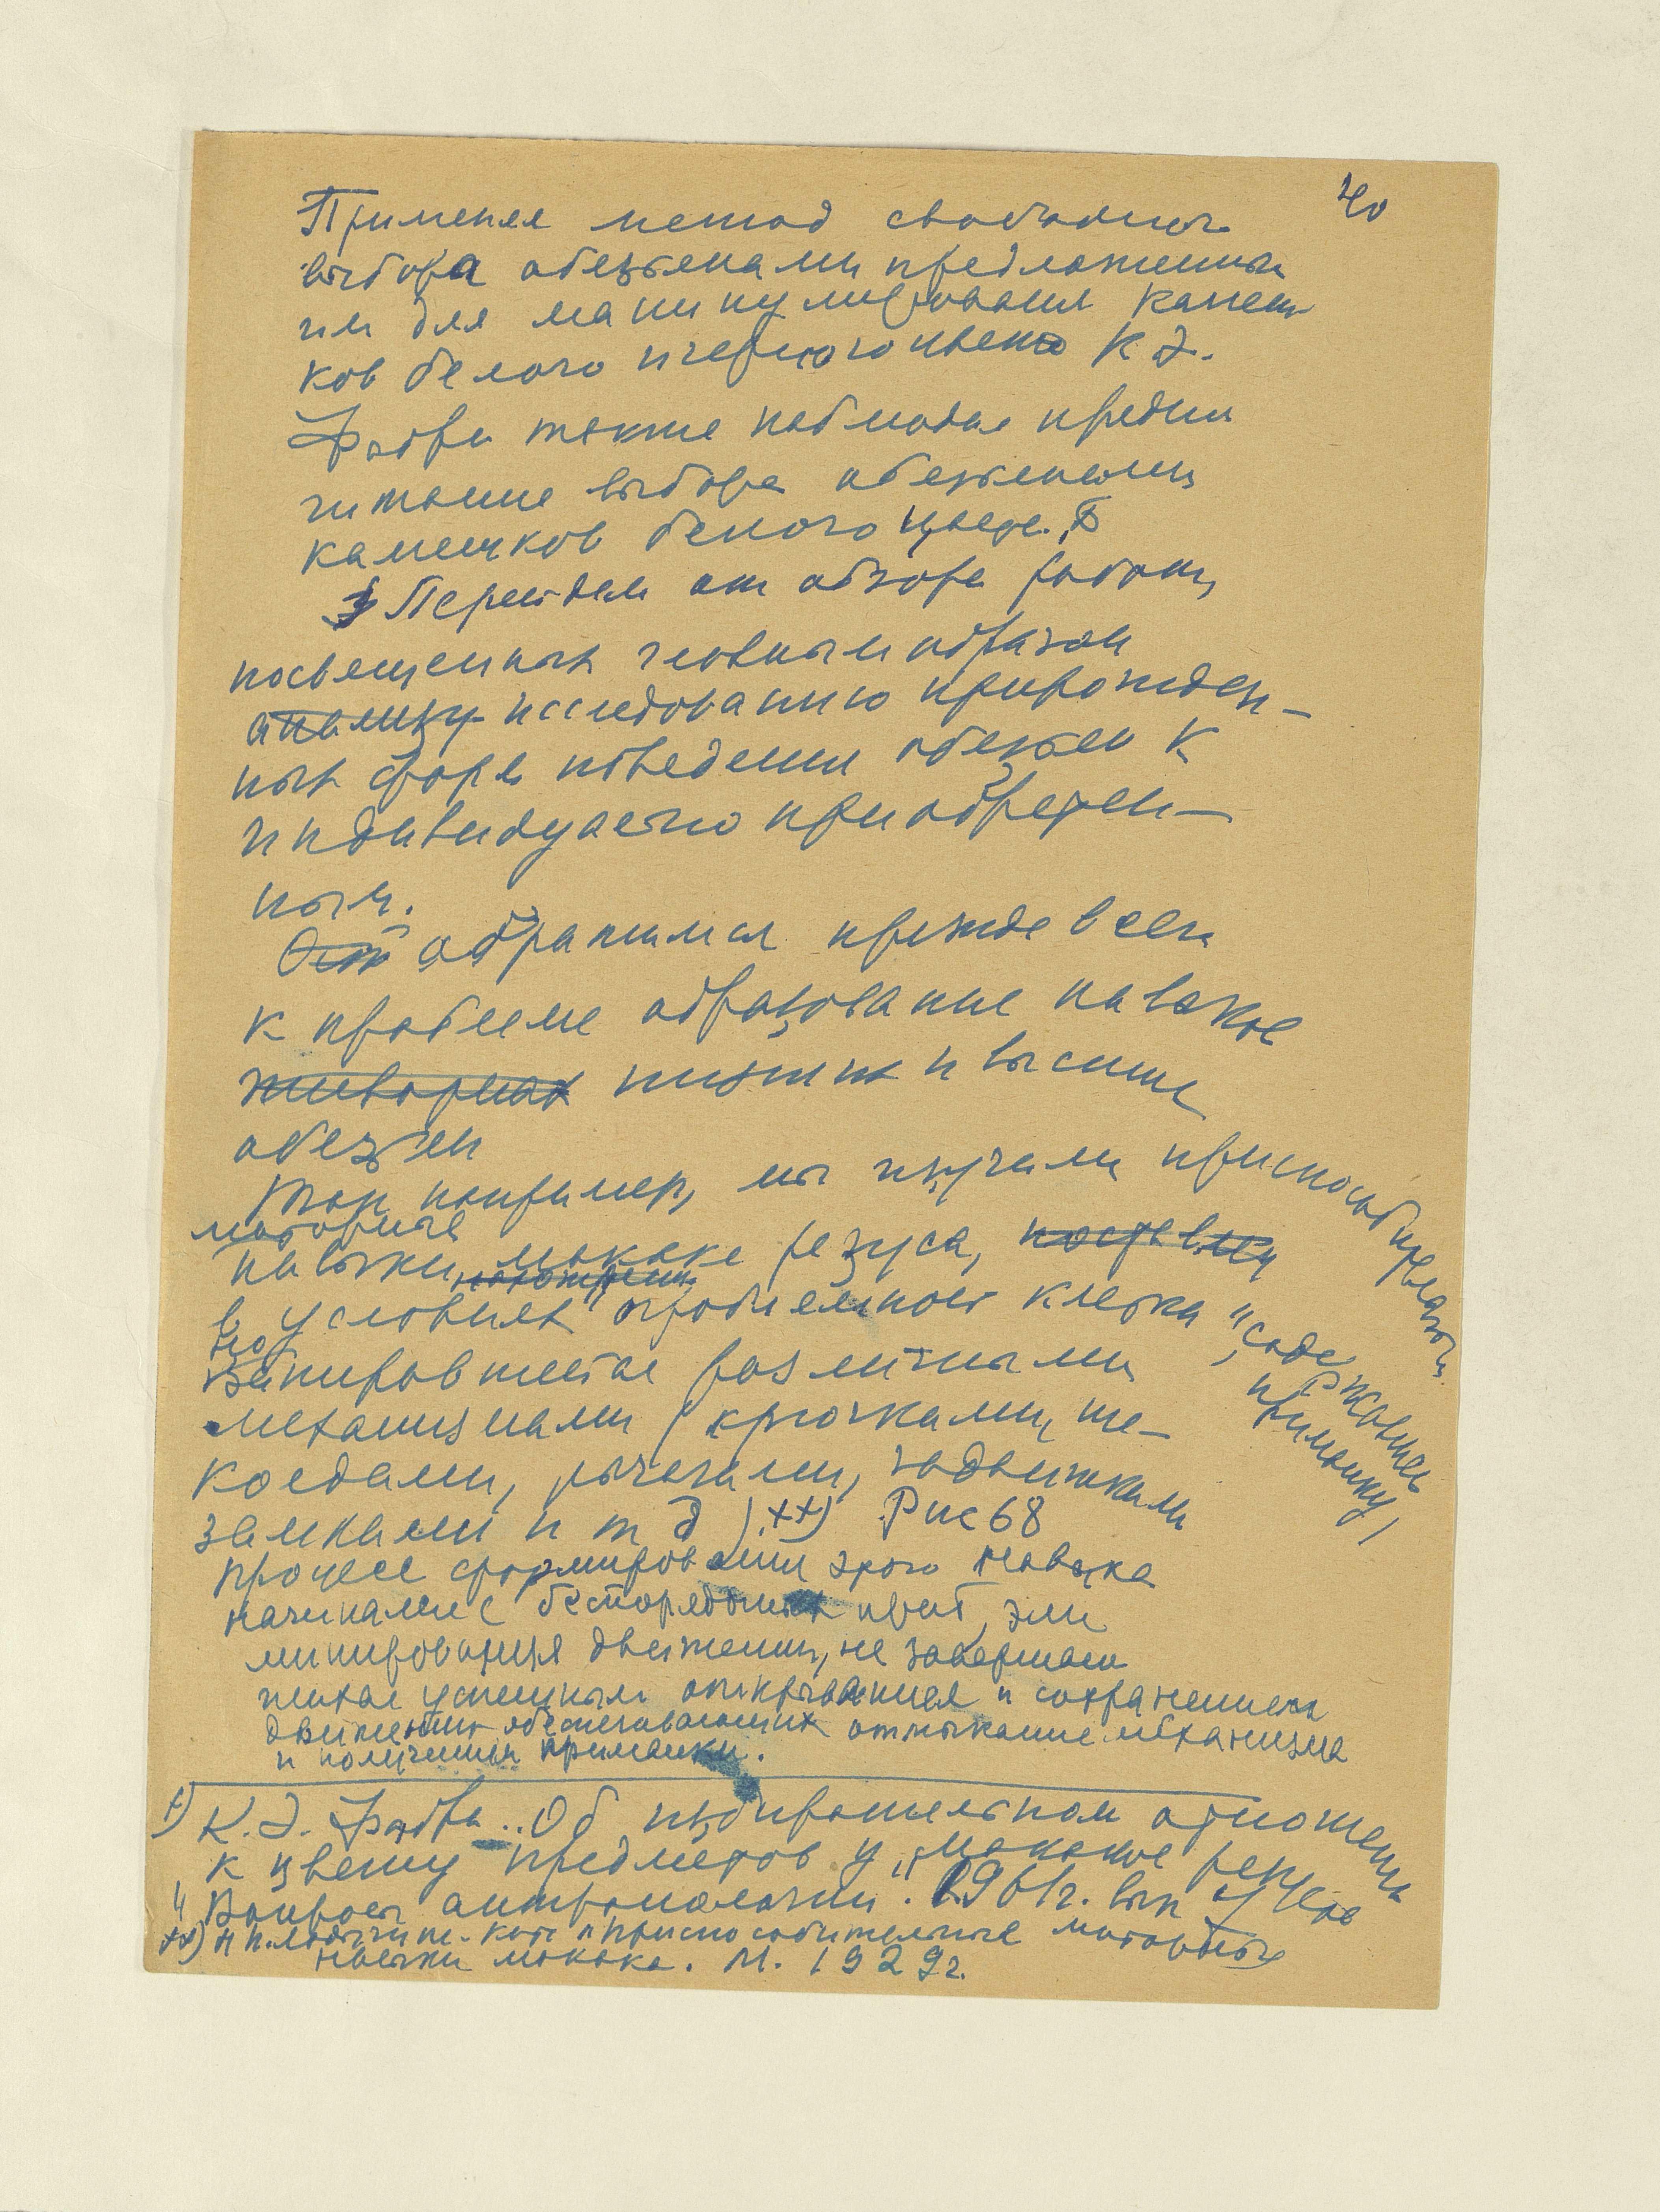 40
Применяя метод свободного
выбора обезьянами предложенных
им для манипулирования камеш-
ков белого и черного цвета К Э.
Фабри также наблюдал предпо
читание выбора обезьянами
камешков белого цвета.
Перейдем от обзора работ,
посвященных главным образом
анализу исследованию прирожден-
ных форм поведения обезьян к
индивидуально приобретен-
ным.
обратимся прежде всего
к проблеме образование навыков
низших и высших
обезьян
Так например, мы изучали приспособительные
моторные
навыки макака резуса,
в условиях проблемной клетки "содержавшей
приманку,
механизмами (крючками, ще-
колдами, рычагами, задвижками
замками и т д). ××) Рис 68
процесс формирования этого навыка
начинался с беспорядочных проб, эли
минирования движении, не завершаю
щихся успешным открыванием и сохранением
движений обеспечивающих отмыкание механизма
и получения приманки.
×) К. Э. Фабри.. Об избирательном отношении
к цвету предметов у макаков резусов
"Вопросы антропологии". 1961г. вып
××) Н Н. Ладыгина-Котс "Приспособительные моторные
навыки макака. М. 1929г.